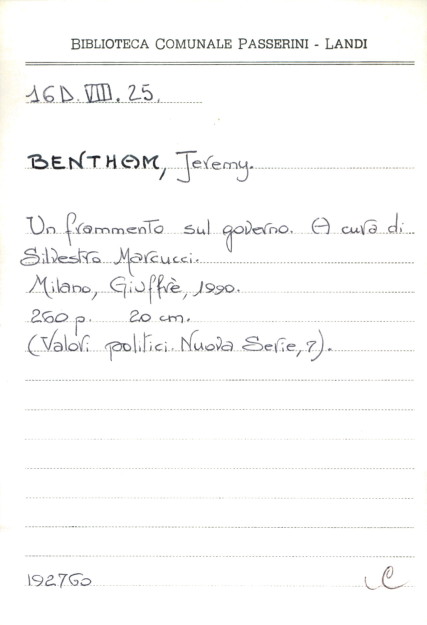 BIBLIOTECA COMUNALE PASSERINI - LANDI
16D.VIII.25.
BENTHAM, Jeremy.
Un frammento sul governo. A cura di
Silvestro Marcucci.
Milano, Giuffrè, 1990.
260 p. 20 cm.
(Valori politici. Nuova Serie, 7).
192760